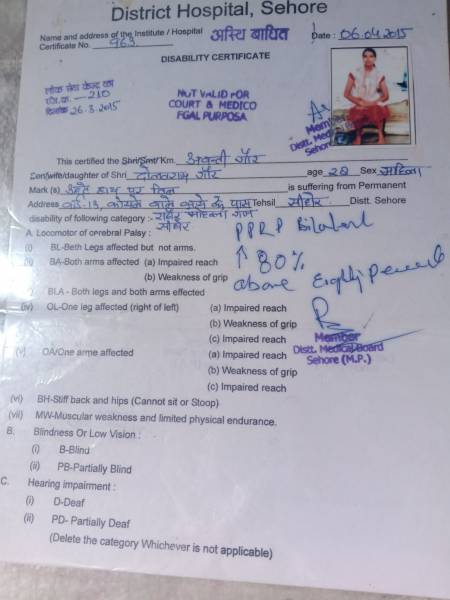 District Hospital, Sehore
Name and address of the Institute / Hospital अस्थि बाधित Date : 06.04.2015
Certificate No. 963
DISABILITY CERTIFICATE
लोक सेवा केन्द्र का
रजि.क. — 210
दिनांक 26.3.2015
NOT VALID FOR
COURT & MEDICO
FGAL PURPOSA
Member
Distt. Med
Sehore
This certified the Shri/Smt/Km. अवन्ती गौर
Son/wife/daughter of Shri दौलतराम गौर age 28 Sex महिला
Mark (s) हाथ पर तिल is suffering from Permanent
Address के पास Tehsil सीहोर Distt. Sehore
disability of following category :-
सीहोर
A. Locomotor of orebral Palsy : PPRP Bilateral
(i) BL-Beth Legs affected but not arms.
BA-Both arms affected (a) Impaired reach ↑ 80%
(b) Weakness of grip above Eighty Percent
BLA - Both legs and both arms effected
(iv) OL-One leg affected (right of left) (a) Impaired reach
(b) Weakness of grip
(c) Impaired reach
Member
Distt. Medical Board
Sehore (M.P.)
(v) OA/One arme affected (a) Impaired reach
(b) Weakness of grip
(c) Impaired reach
(vi) BH-Stiff back and hips (Cannot sit or Stoop)
(vii) MW-Muscular weakness and limited physical endurance.
B. Blindness Or Low Vision :
(i) B-Blind
(ii) PB-Partially Blind
C. Hearing impairment :
(i) D-Deaf
(ii) PD- Partially Deaf
(Delete the category Whichever is not applicable)